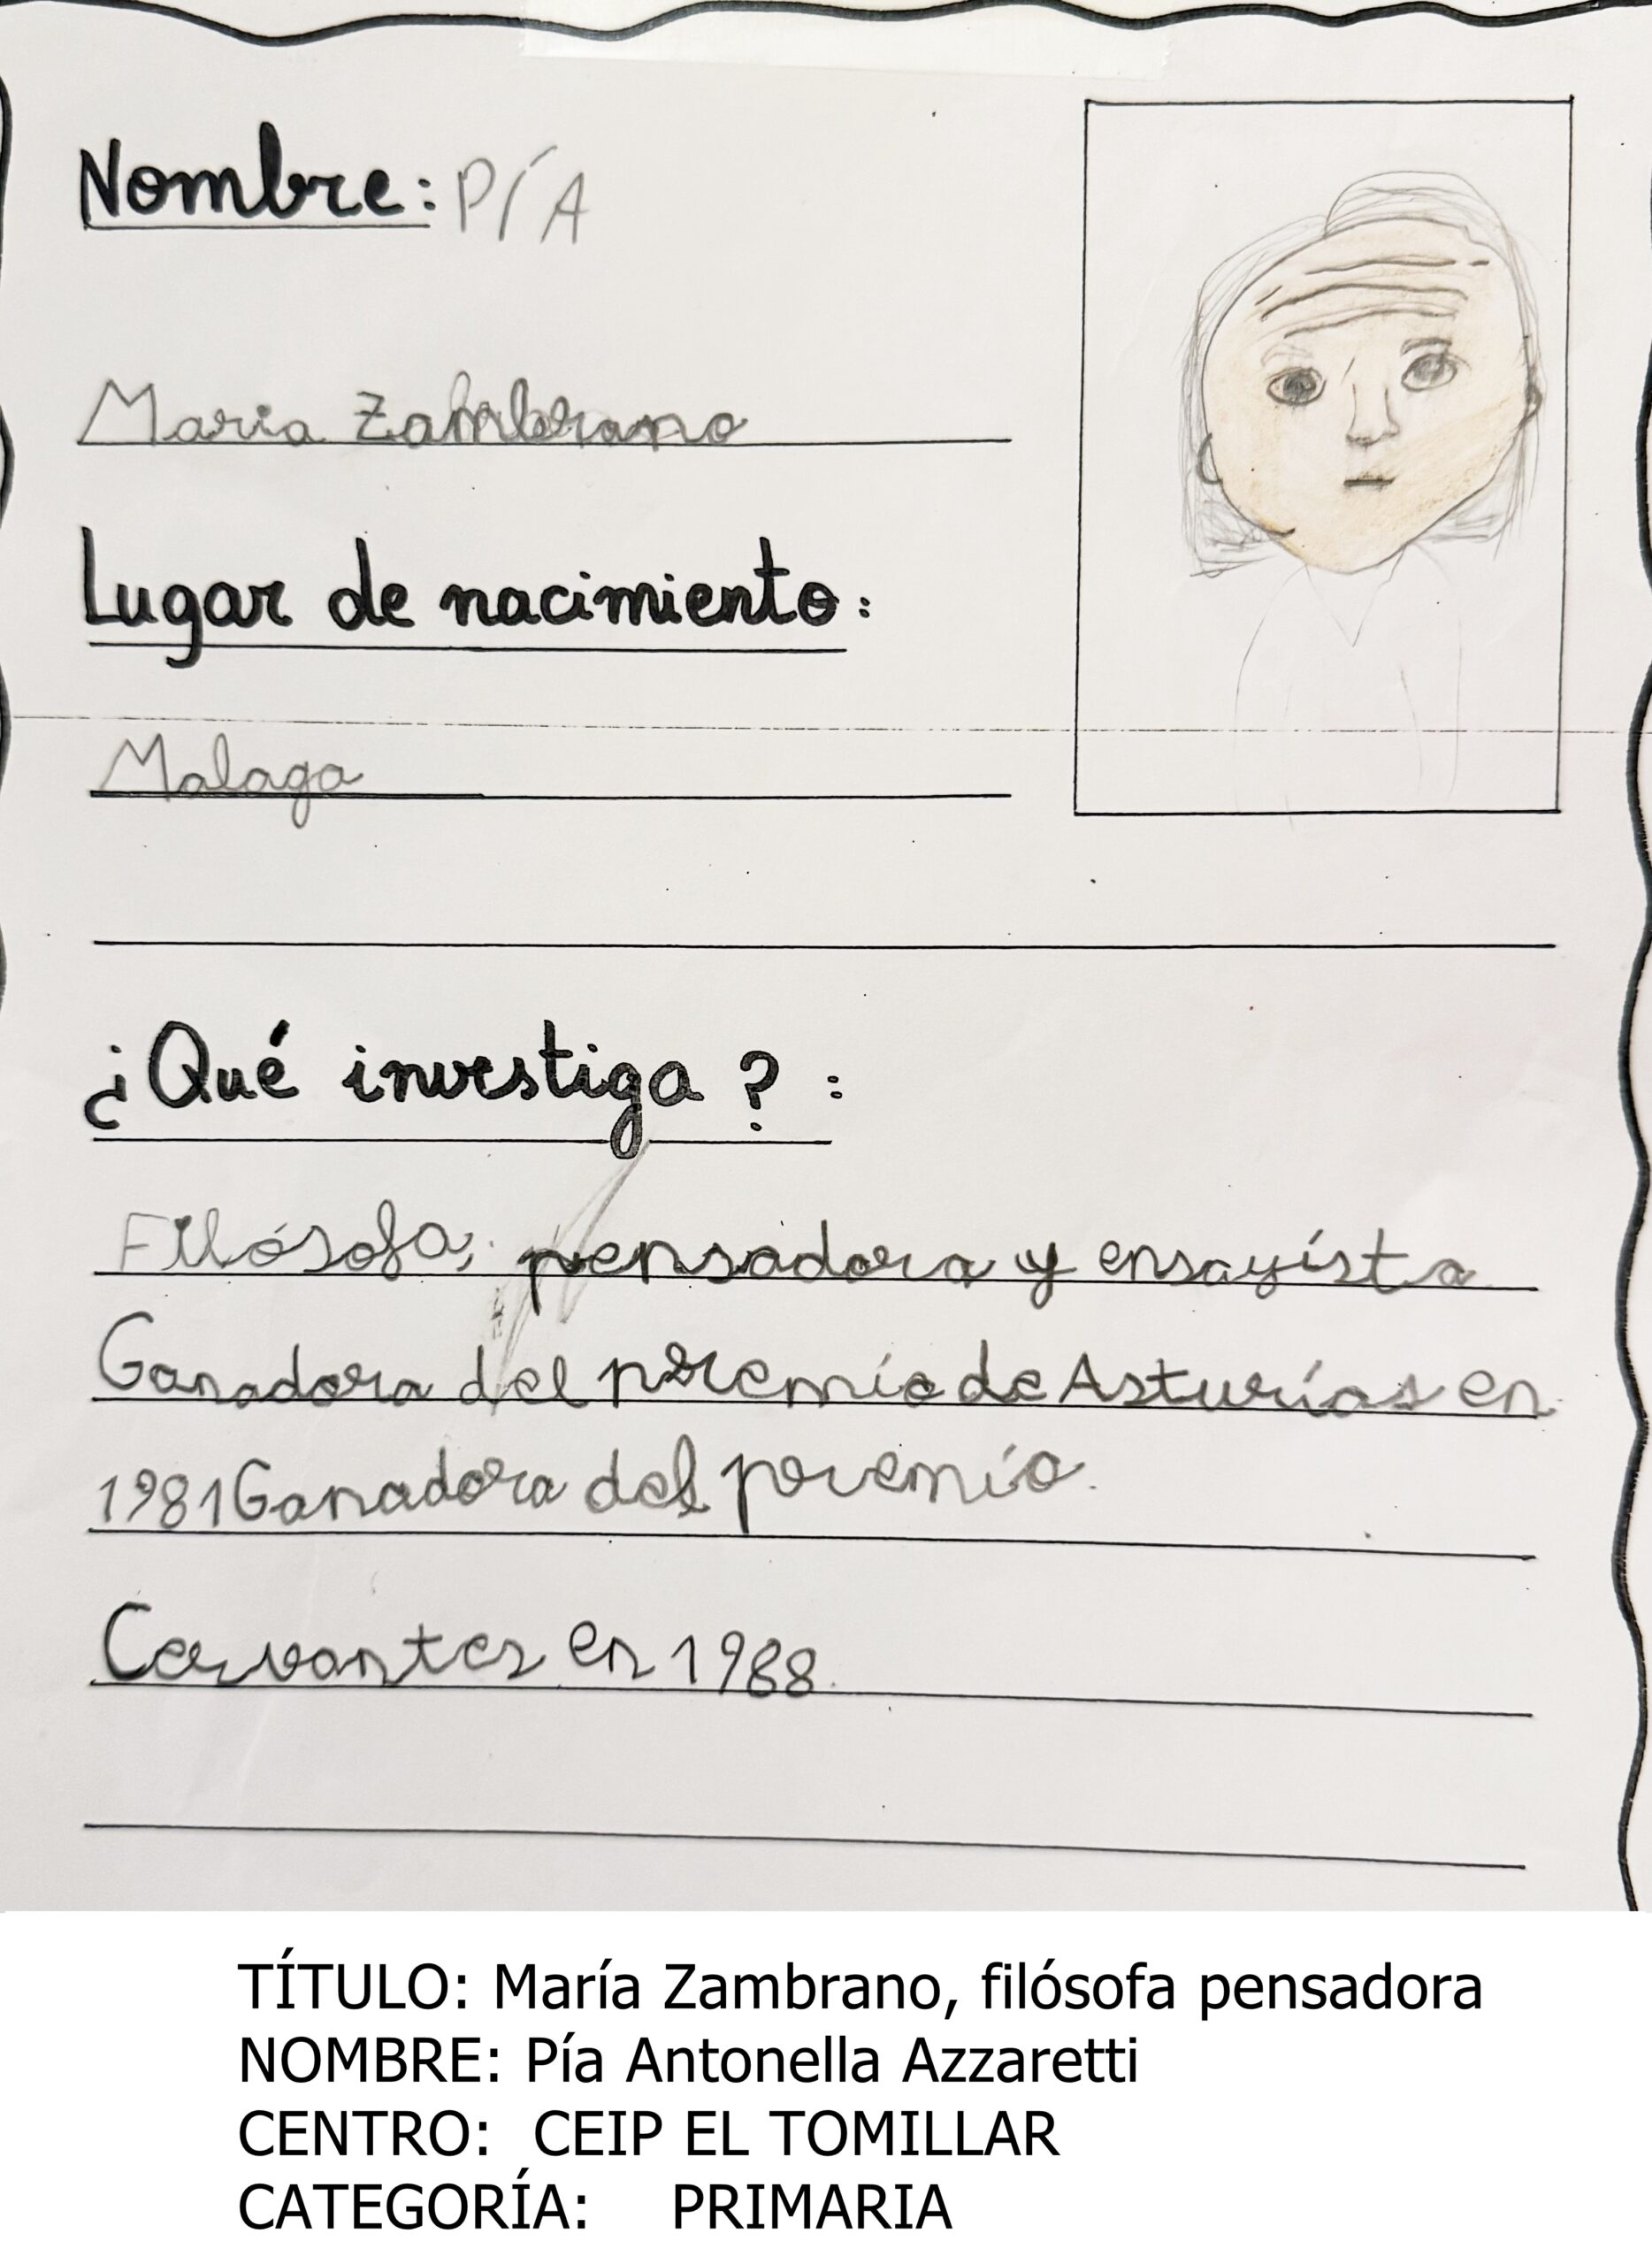 Nombre: PÍA
Maria Zambrano
Lugar de nacimiento:
Malaga
¿Qué investiga?:
Filósofa, pensadora y ensayísta
Ganadora del premío de Asturías en
1981 Ganadora del premío.
Cervantes en 1988.
TÍTULO: María Zambrano, filósofa pensadora
NOMBRE: Pía Antonella Azzaretti
CENTRO: CEIP EL TOMILLAR
CATEGORÍA: PRIMARIA